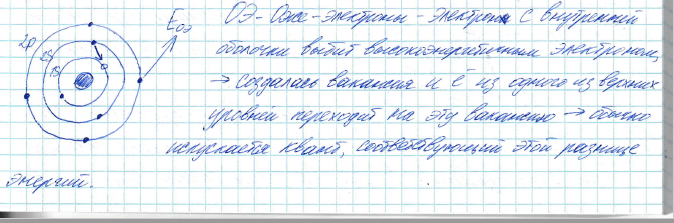 2p
2s
1s
E оэ
ОЭ - Оже-электроны - электроны с внутренней
оболочки выбит высокоэнергетичным электроном,
→ создалась вакансия и ē из одного из верхних
уровней переходит на эту вакансию → обычно
испускается квант, соответствующий этой разнице
энергий.